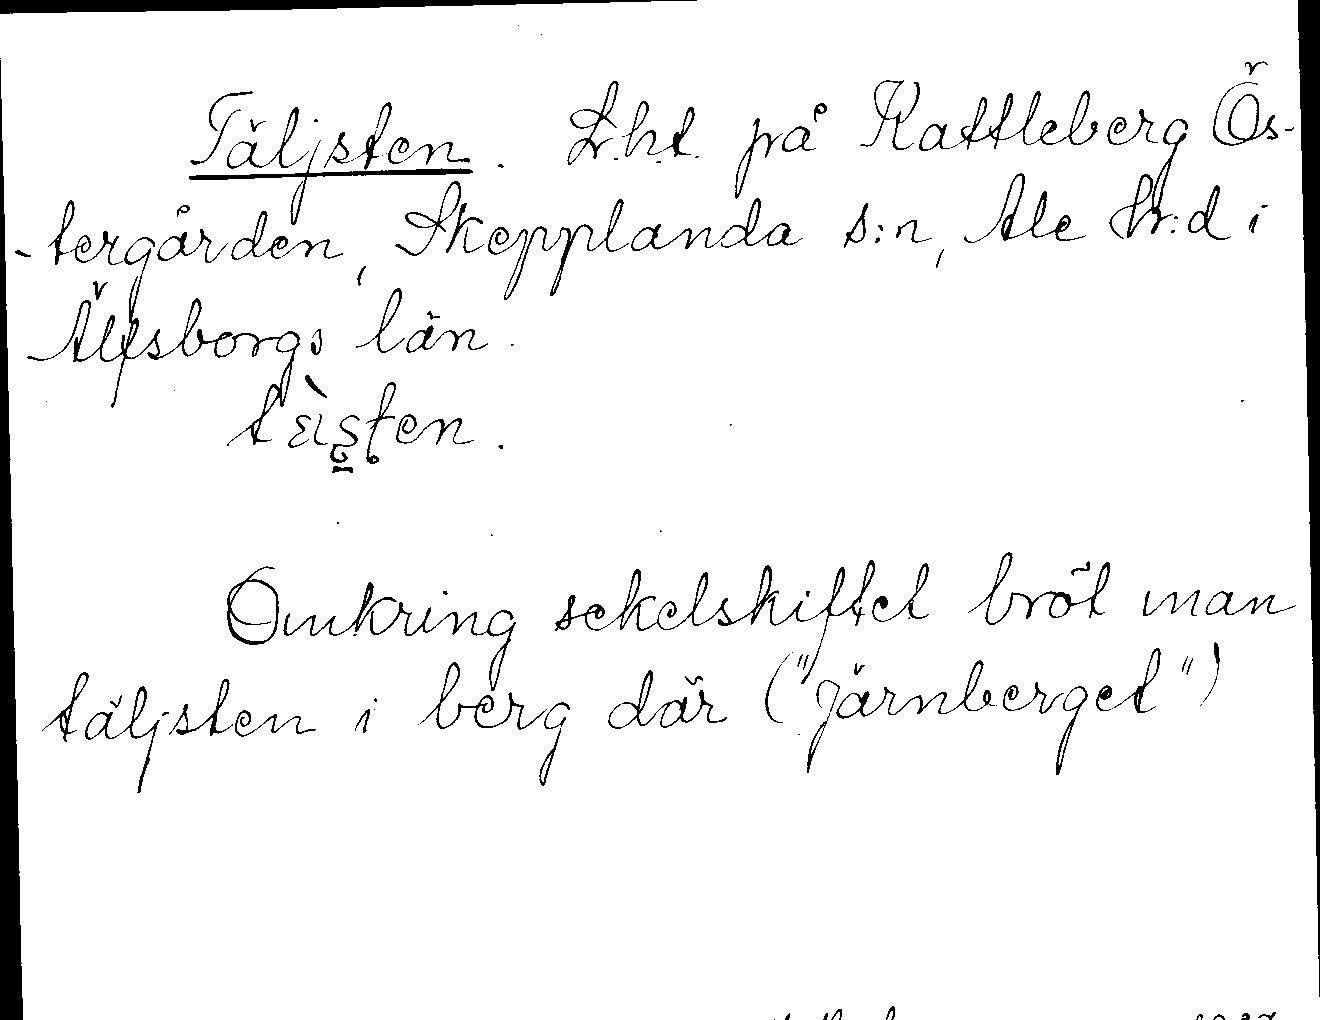 Täljsten. L.h.t. på Kattleberg Ös-
-tergården, Skepplanda s:n, Ale hr:d i
Älfsborgs län.
tɛ̀ıs̱ten.
Omkring sekelskiftet bröt man
täljsten i berg där ("Järnberget")